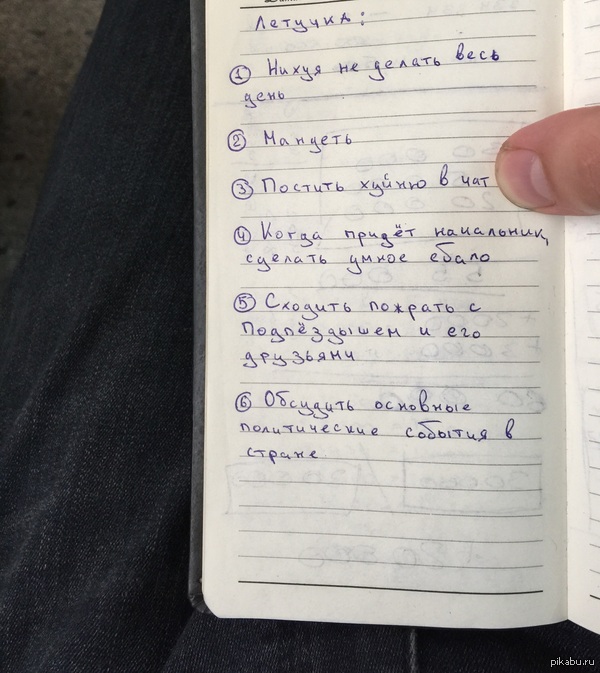 Летучка:
① Нихуя не делать весь
день
② Мандеть
③ Постить хуйню в чат
④ Когда придёт начальник,
сделать умное ебало
⑤ Сходить пожрать с
Подпёздышем и его
друзьями
⑥ Обсудить основные
политические события в
стране
pikabu.ru